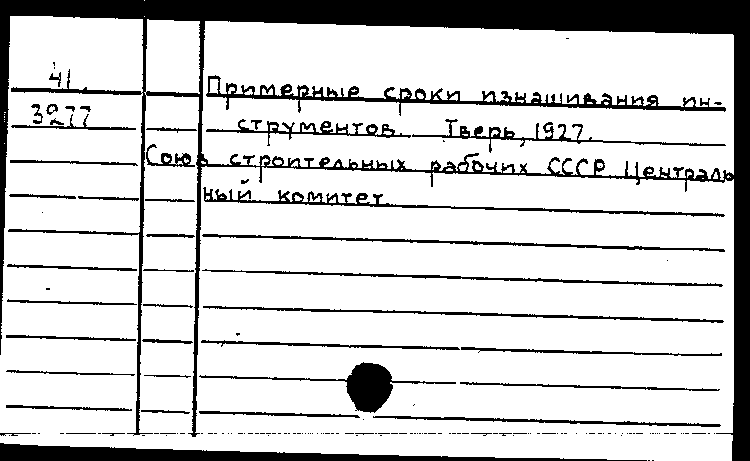 41.
Примерные сроки изнашивания ин-
3277
струментов. Тверь, 1927.
Союз строительных рабочих СССР Централь
ный комитет.